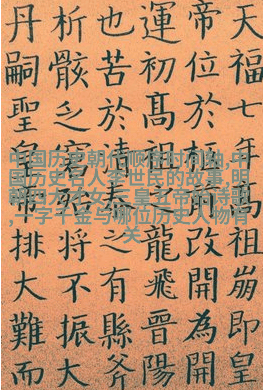 天福七年祖崩即皇
帝位於改開為開
運初高龍飛晉陽
也苦於清泰之有縣斧
析骸之將不振大
丹嗣聖皇排大難而
中国历史朝代顺序时间轴,中
国历史名人李世民的故事,明
朝自大女王,皇女帝的诗歌
,一字千金与哪位历史人物有
关